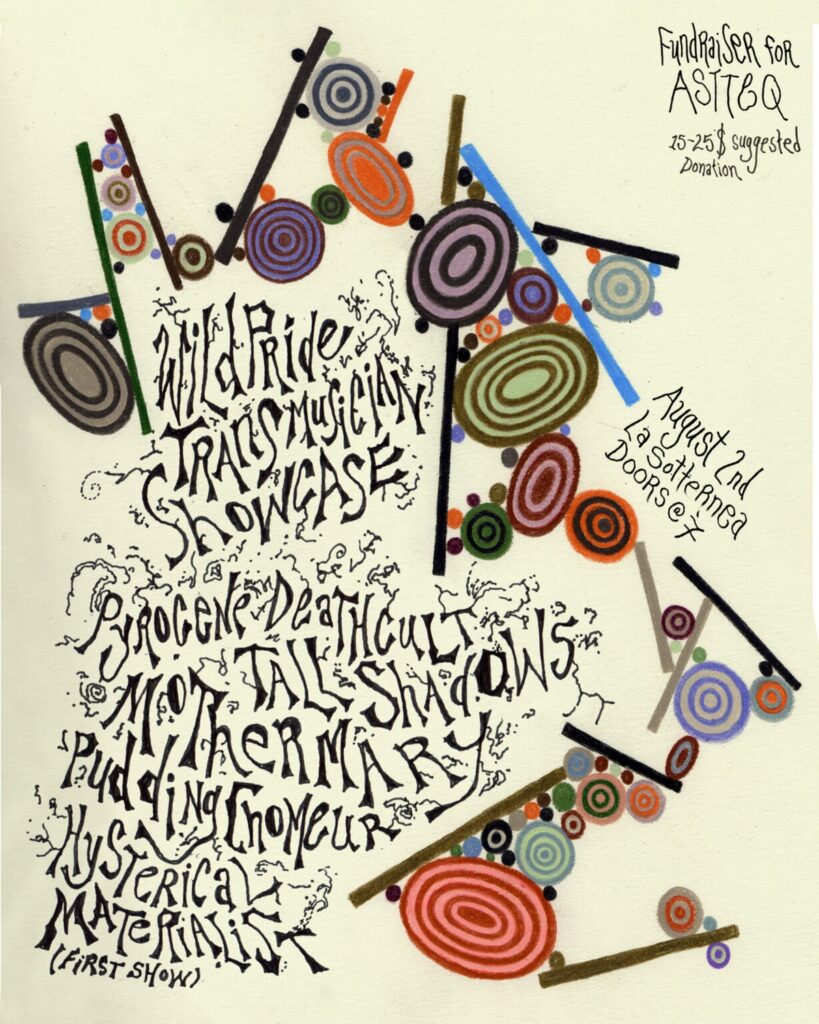 Fundraiser for
ASTTEQ
15-25$ suggested
Donation
Wild Pride
Trans Musician
Showcase
August 2nd
La Sotterenea
Doors @ 7
Pyrocene Deathcult
Tall Shadows
Mother Mary
Pudding Chomeur
Hysterical
Materialist
(First Show)